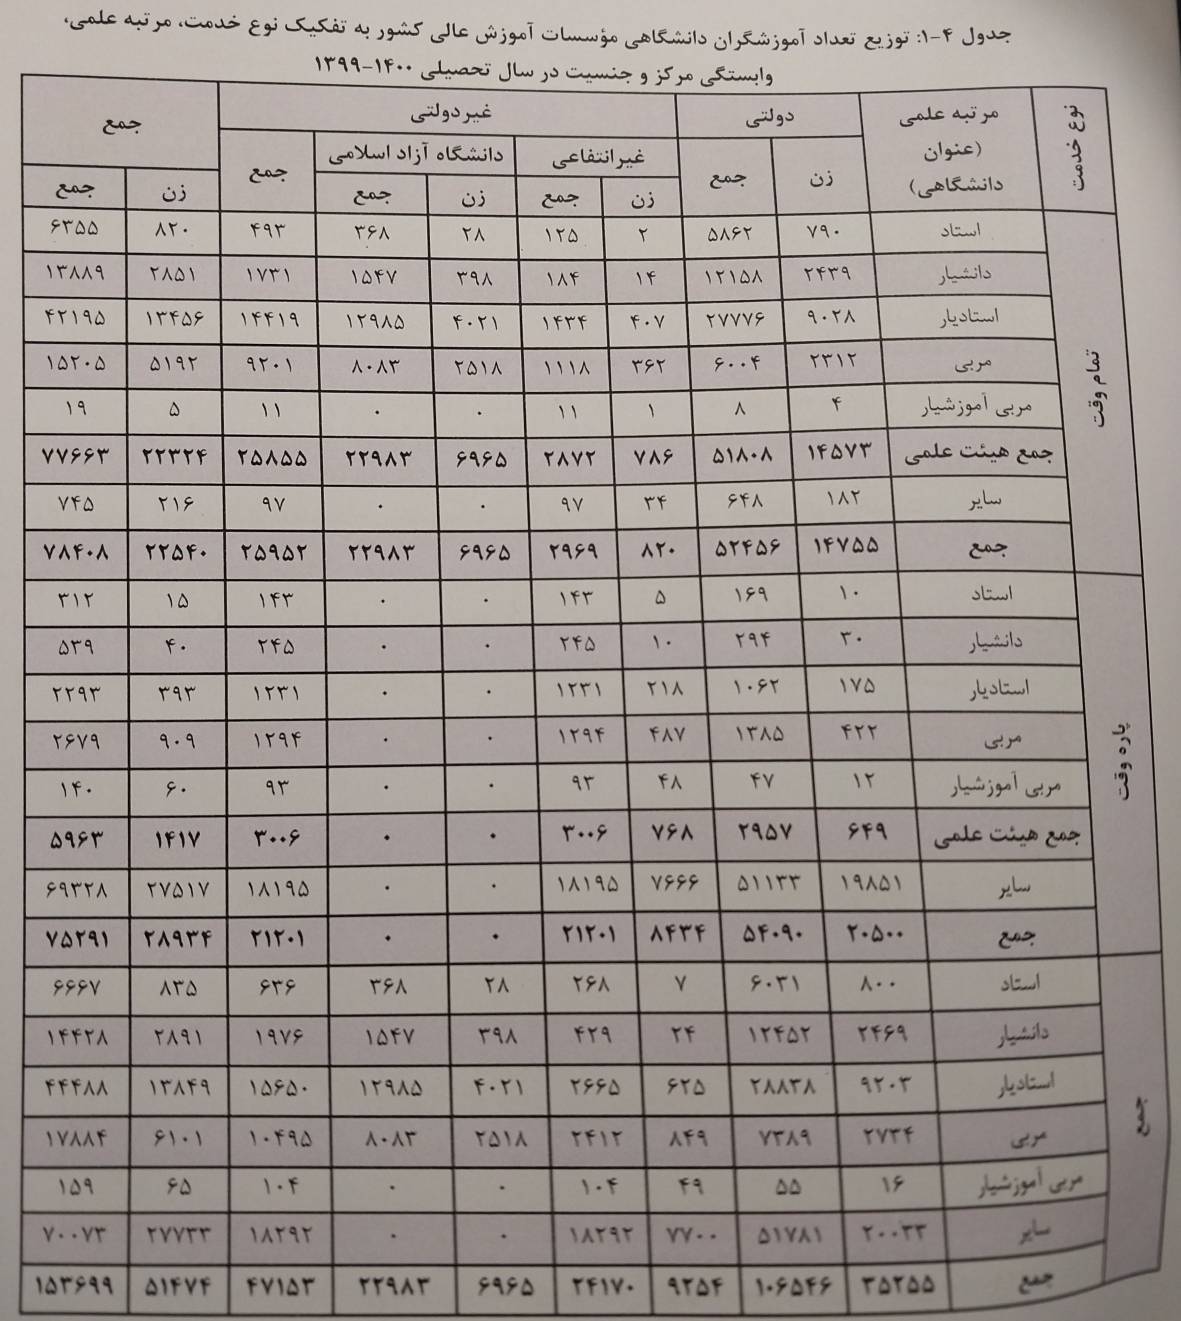 جدول ۴-۱: توزیع تعداد آموزشگران دانشگاهی مؤسسات آموزش عالی کشور به تفکیک نوع خدمت، مرتبه علمی،
وابستگی مرکز و جنسیت در سال تحصیلی ۱۴۰۰-۱۳۹۹
نوع خدمت مرتبه علمی (عنوان دانشگاهی) دولتی غیردولتی جمع
غیرانتفاعی دانشگاه آزاد اسلامی جمع
زن جمع زن جمع زن جمع زن جمع
تمام وقت
استاد ۷۹۰ ۵۸۶۲ ۲ ۱۲۵ ۲۸ ۳۶۸ ۴۹۳ ۸۲۰ ۶۳۵۵
دانشیار ۲۴۳۹ ۱۲۱۵۸ ۱۴ ۱۸۴ ۳۹۸ ۱۵۴۷ ۱۷۳۱ ۲۸۵۱ ۱۳۸۸۹
استادیار ۹۰۲۸ ۲۷۷۷۶ ۴۰۷ ۱۴۳۴ ۴۰۲۱ ۱۲۹۸۵ ۱۴۴۱۹ ۱۳۴۵۶ ۴۲۱۹۵
مربی ۲۳۱۲ ۶۰۰۴ ۳۶۲ ۱۱۱۸ ۲۵۱۸ ۸۰۸۳ ۹۲۰۱ ۵۱۹۲ ۱۵۲۰۵
مربی آموزشیار ۴ ۸ ۱ ۱۱ ۰ ۰ ۱۱ ۵ ۱۹
جمع هیئت علمی ۱۴۵۷۳ ۵۱۸۰۸ ۷۸۶ ۲۸۷۲ ۶۹۶۵ ۲۲۹۸۳ ۲۵۸۵۵ ۲۲۳۲۴ ۷۷۶۶۳
سایر ۱۸۲ ۶۴۸ ۳۴ ۹۷ ۰ ۰ ۹۷ ۲۱۶ ۷۴۵
جمع ۱۴۷۵۵ ۵۲۴۵۶ ۸۲۰ ۲۹۶۹ ۶۹۶۵ ۲۲۹۸۳ ۲۵۹۵۲ ۲۲۵۴۰ ۷۸۴۰۸
پاره وقت
استاد ۱۰ ۱۶۹ ۵ ۱۴۳ ۰ ۰ ۱۴۳ ۱۵ ۳۱۲
دانشیار ۳۰ ۲۹۴ ۱۰ ۲۴۵ ۰ ۰ ۲۴۵ ۴۰ ۵۳۹
استادیار ۱۷۵ ۱۰۶۲ ۲۱۸ ۱۲۳۱ ۰ ۰ ۱۲۳۱ ۳۹۳ ۲۲۹۳
مربی ۴۲۲ ۱۳۸۵ ۴۸۷ ۱۲۹۴ ۰ ۰ ۱۲۹۴ ۹۰۹ ۲۶۷۹
مربی آموزشیار ۱۲ ۴۷ ۴۸ ۹۳ ۰ ۰ ۹۳ ۶۰ ۱۴۰
جمع هیئت علمی ۶۴۹ ۲۹۵۷ ۷۶۸ ۳۰۰۶ ۰ ۰ ۳۰۰۶ ۱۴۱۷ ۵۹۶۳
سایر ۱۹۸۵۱ ۵۱۱۳۳ ۷۶۶۶ ۱۸۱۹۵ ۰ ۰ ۱۸۱۹۵ ۲۷۵۱۷ ۶۹۳۲۸
جمع ۲۰۵۰۰ ۵۴۰۹۰ ۸۴۳۴ ۲۱۲۰۱ ۰ ۰ ۲۱۲۰۱ ۲۸۹۳۴ ۷۵۲۹۱
جمع
استاد ۸۰۰ ۶۰۳۱ ۷ ۲۶۸ ۲۸ ۳۶۸ ۶۳۶ ۸۳۵ ۶۶۶۷
دانشیار ۲۴۶۹ ۱۲۴۵۲ ۲۴ ۴۲۹ ۳۹۸ ۱۵۴۷ ۱۹۷۶ ۲۸۹۱ ۱۴۴۲۸
استادیار ۹۲۰۳ ۲۸۸۳۸ ۶۲۵ ۲۶۶۵ ۴۰۲۱ ۱۲۹۸۵ ۱۵۶۵۰ ۱۳۸۴۹ ۴۴۴۸۸
مربی ۲۷۳۴ ۷۳۸۹ ۸۴۹ ۲۴۱۲ ۲۵۱۸ ۸۰۸۳ ۱۰۴۹۵ ۶۱۰۱ ۱۷۸۸۴
مربی آموزشیار ۱۶ ۵۵ ۴۹ ۱۰۴ ۰ ۰ ۱۰۴ ۶۵ ۱۵۹
سایر ۲۰۰۳۳ ۵۱۷۸۱ ۷۷۰۰ ۱۸۲۹۲ ۰ ۰ ۱۸۲۹۲ ۲۷۷۳۳ ۷۰۰۷۳
جمع ۳۵۲۵۵ ۱۰۶۵۴۶ ۹۲۵۴ ۲۴۱۷۰ ۶۹۶۵ ۲۲۹۸۳ ۴۷۱۵۳ ۵۱۴۷۴ ۱۵۳۶۹۹